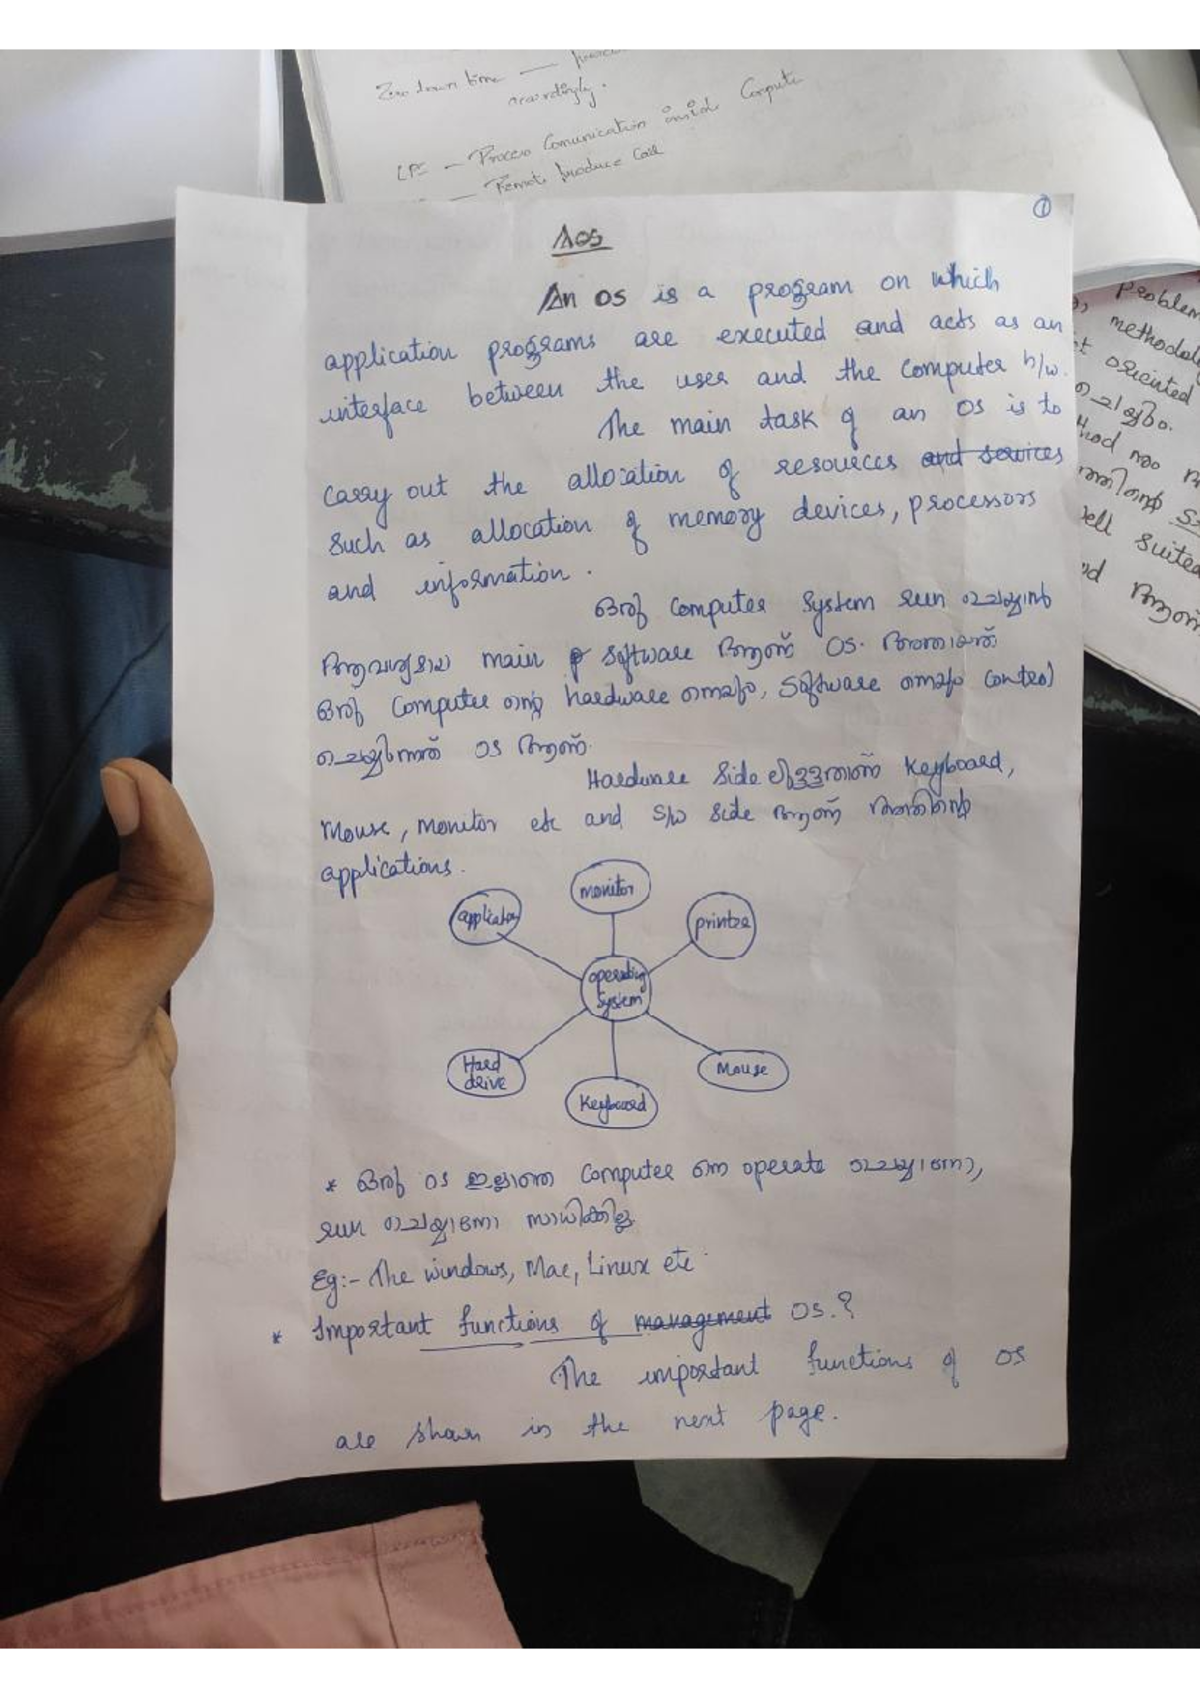 Zero down time —
accordingly.
— Process Comunication inside Compute
— Remote produce Call
①
Aos
An OS is a program on which
application programs are executed and acts as an
interface between the user and the computer h/w.
The main task of an OS is to
carry out the allocation of resources and services
such as allocation of memory devices, processors
and information.
ഒരു computer system run ചെയ്യാൻ
ആവശ്യമായ main software ആണ് OS. അതായത്
ഒരു Computer ന്റെ hardware നെയും, Software നെയും control
ചെയ്യുന്നത് OS ആണ്.
Hardware side ലുള്ളതാണ് Keyboard,
Mouse, Monitor etc and S/w side ആണ് അതിന്റെ
applications.
monitor
application
printer
operating
system
Hard
drive
Mouse
Keyboard
* ഒരു OS ഇല്ലാതെ Computer നെ operate ചെയ്യാനോ,
run ചെയ്യാനോ സാധിക്കില്ല.
Eg:- The windows, Mac, Linux etc.
* Important functions of management OS.?
The important functions of OS
are shown in the next page.
problem
methodol
oriented
ചെയ്യും.
suited